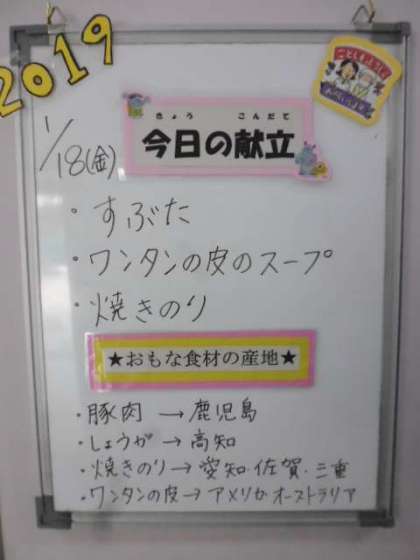 2019
1/18(金)
きょう こんだて
今日の献立
・すぶた
・ワンタンの皮のスープ
・焼きのり
★おもな食材の産地★
・豚肉→鹿児島
・しょうが→高知
・焼きのり→愛知・佐賀・三重
・ワンタンの皮→アメリカ・オーストラリア